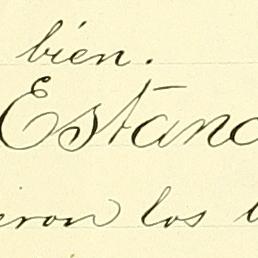 bien.
Estand
eron los l